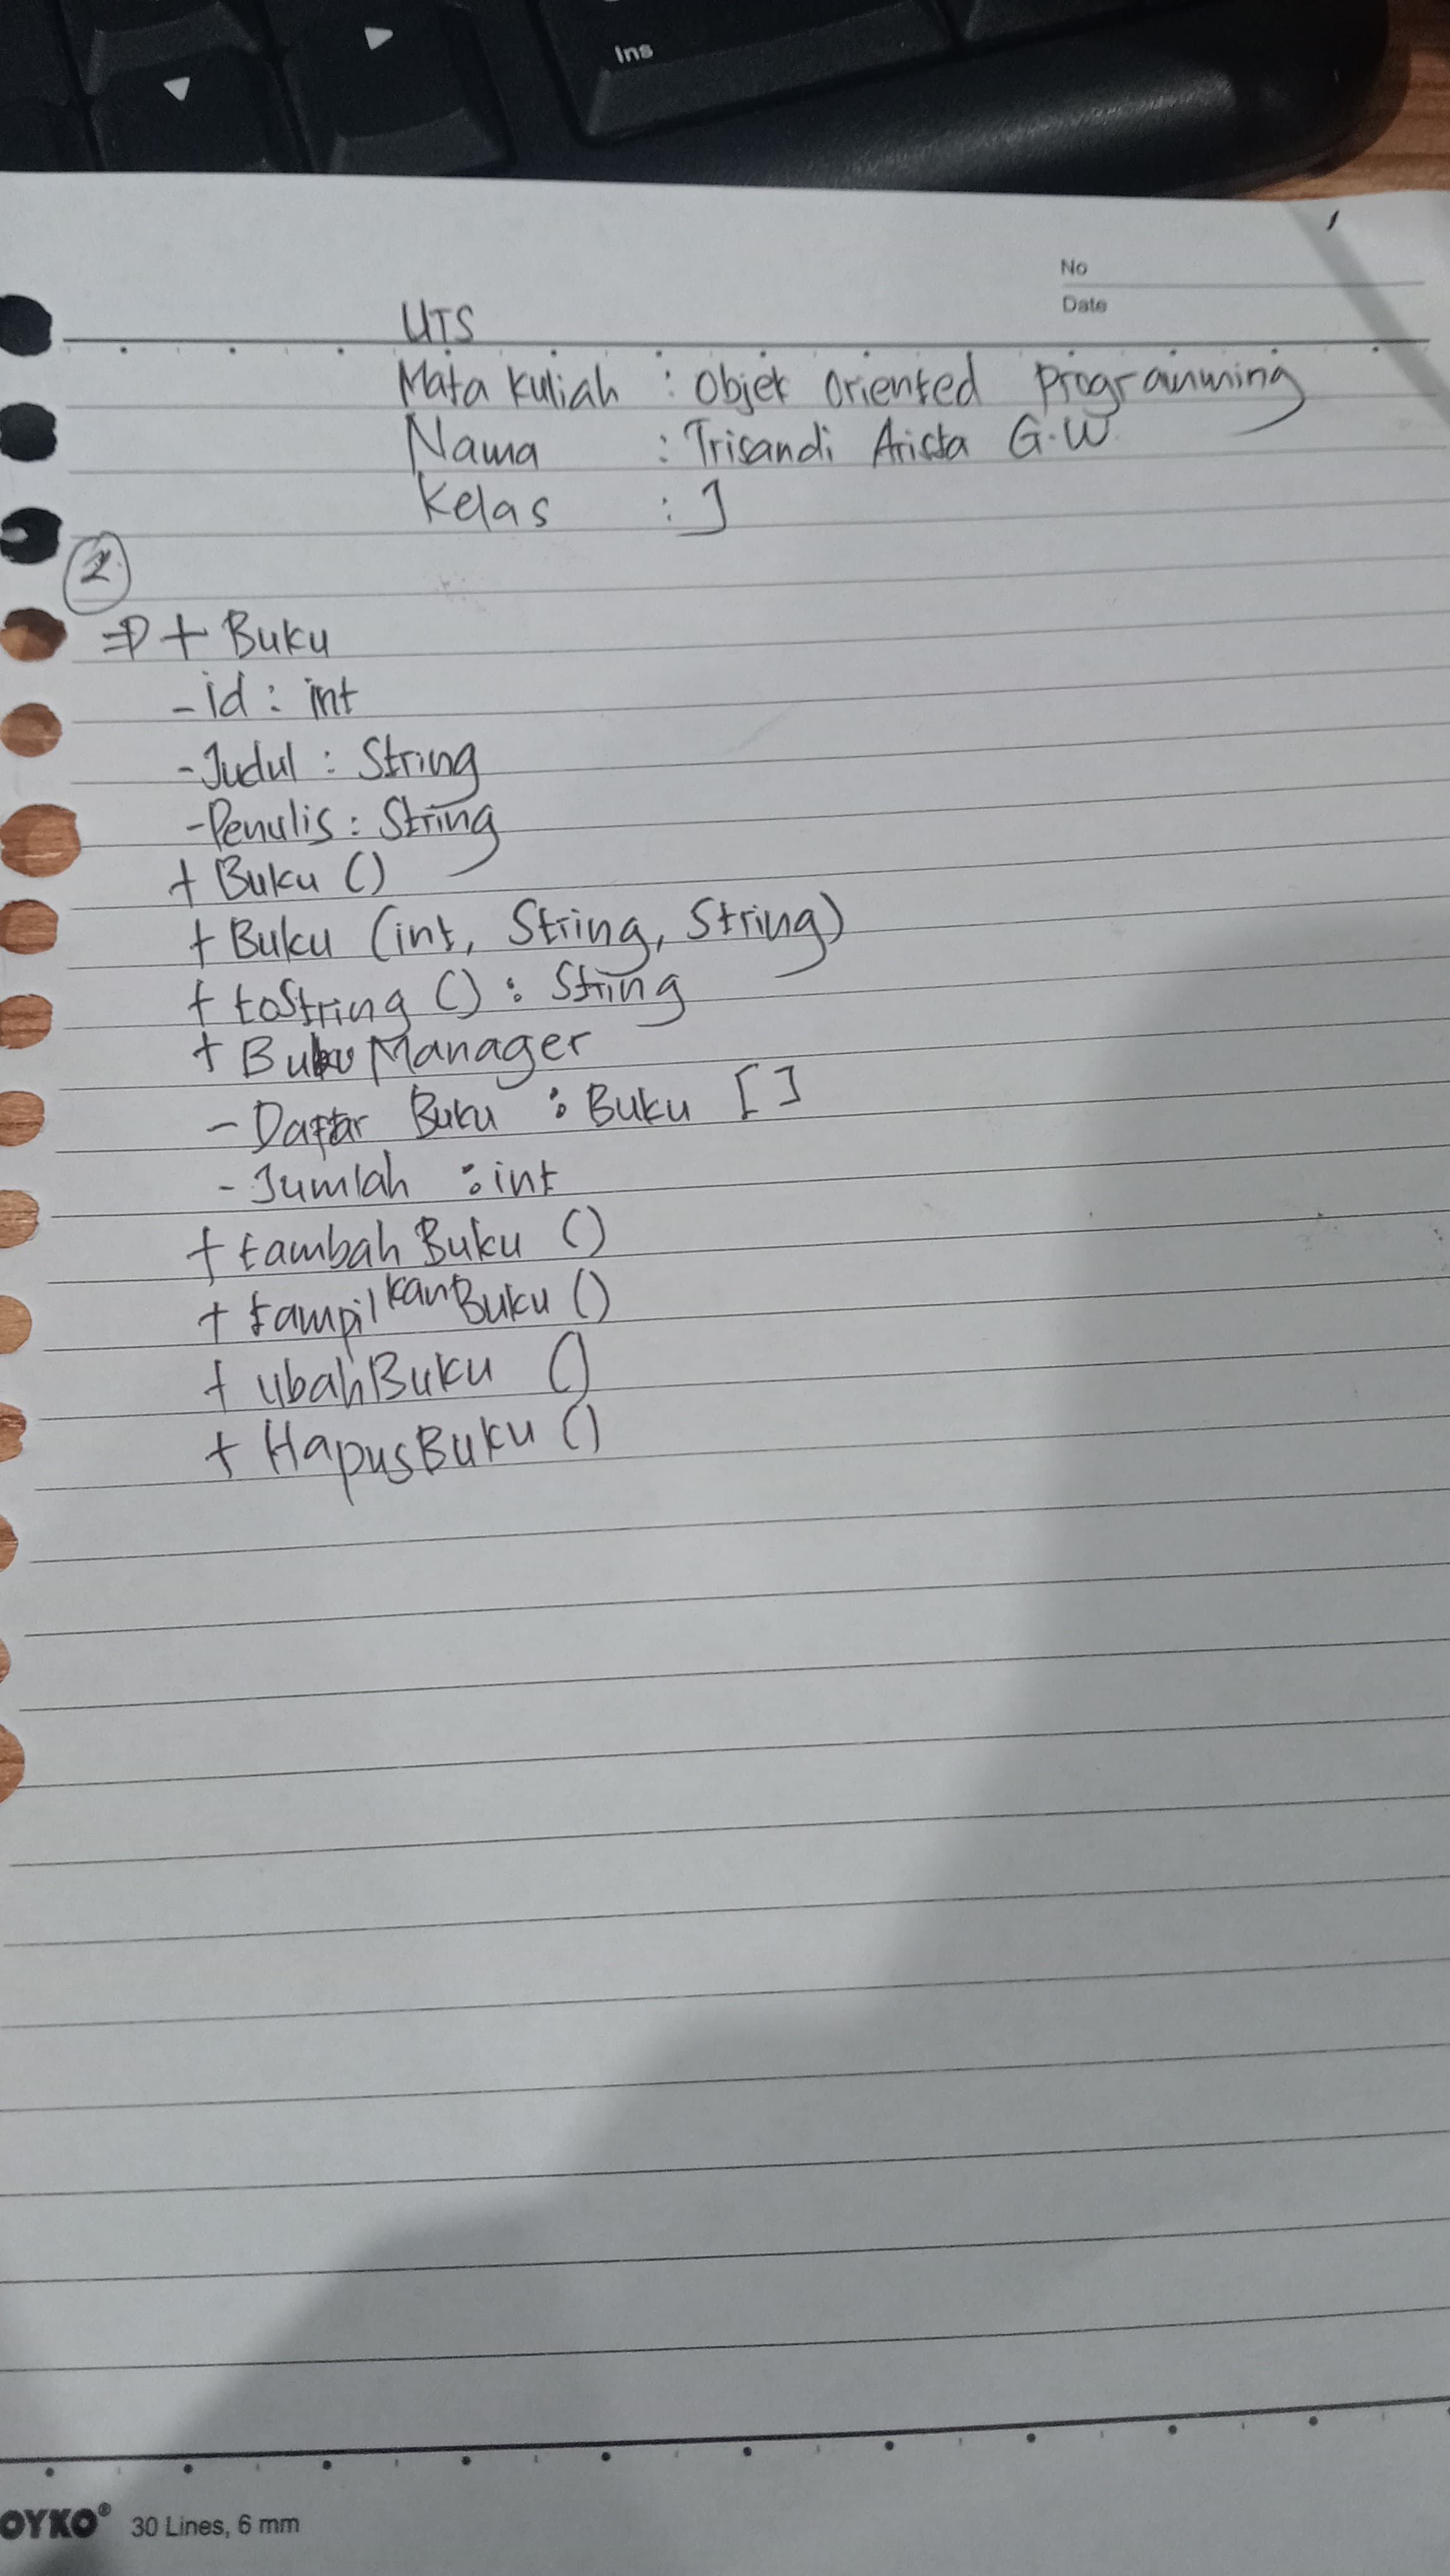 Ins
No
Date
UTS
Mata kuliah : Objek Oriented Programming
Nama : Trisandi Arista G.W
Kelas : J
2
⇒ + Buku
- id : int
- Judul : String
- Penulis : String
+ Buku ()
+ Buku (int, String, String)
+ toString () : String
+ Buku Manager
- Daftar Buku : Buku []
- Jumlah : int
+ tambah Buku ()
+ tampilkanBuku ()
+ ubahBuku ()
+ HapusBuku ()
OYKO® 30 Lines, 6 mm